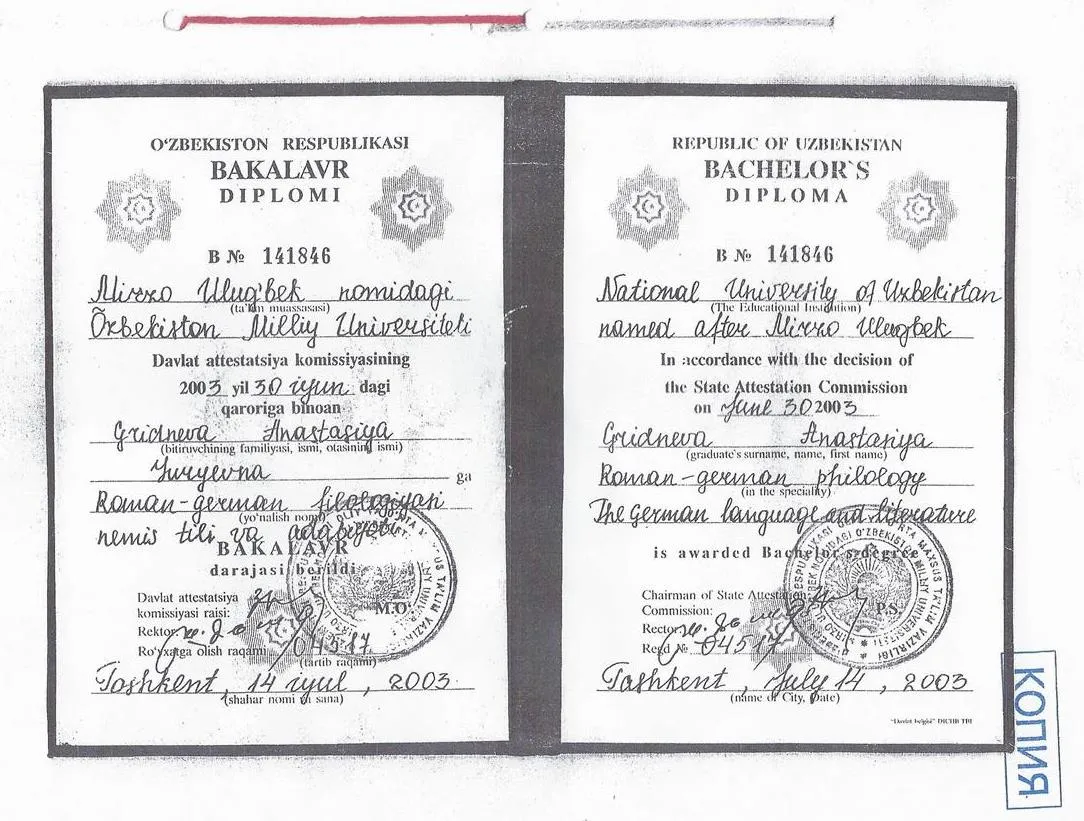 O‘ZBEKISTON RESPUBLIKASI
BAKALAVR
DIPLOMI
B № 141846
Mirzo Ulug'bek nomidagi
(ta'lim muassasasi)
Õzbekiston Milliy Universiteti
Davlat attestatsiya komissiyasining
2003 yil 30 iyun dagi
qaroriga binoan
Gridneva Anastasiya
(bitiruvchining familiyasi, ismi, otasining ismi)
Yuryevna ga
Roman-german filologiyasi
(yo'nalish nomi)
nemis tili va adabiyoti
BAKALAVR
darajasi berildi
Davlat attestatsiya
komissiyasi raisi:
M.O‘
Rektor:
Ro‘yxatga olish raqami 04517
(tartib raqami)
Toshkent, 14 iyul, 2003
(shahar nomi va sana)
REPUBLIC OF UZBEKISTAN
BACHELOR`S
DIPLOMA
B № 141846
National University of Uzbekistan
(The Educational Institution)
named after Mirzo Ulugbek
In accordance with the decision of
the State Attestation Commission
on June 30 2003
Gridneva Anastasiya
(graduate's surname, name, first name)
Roman-german philology
(in the speciality)
The German language and literature
is awarded Bachelor's degree
Chairman of State Attestation
Commission:
P.S.
Rector
Regd № 04517
Tashkent, July 14, 2003
(name of City, Date)
"Davlat belgisi" DICHB TBI
КОПИЯ